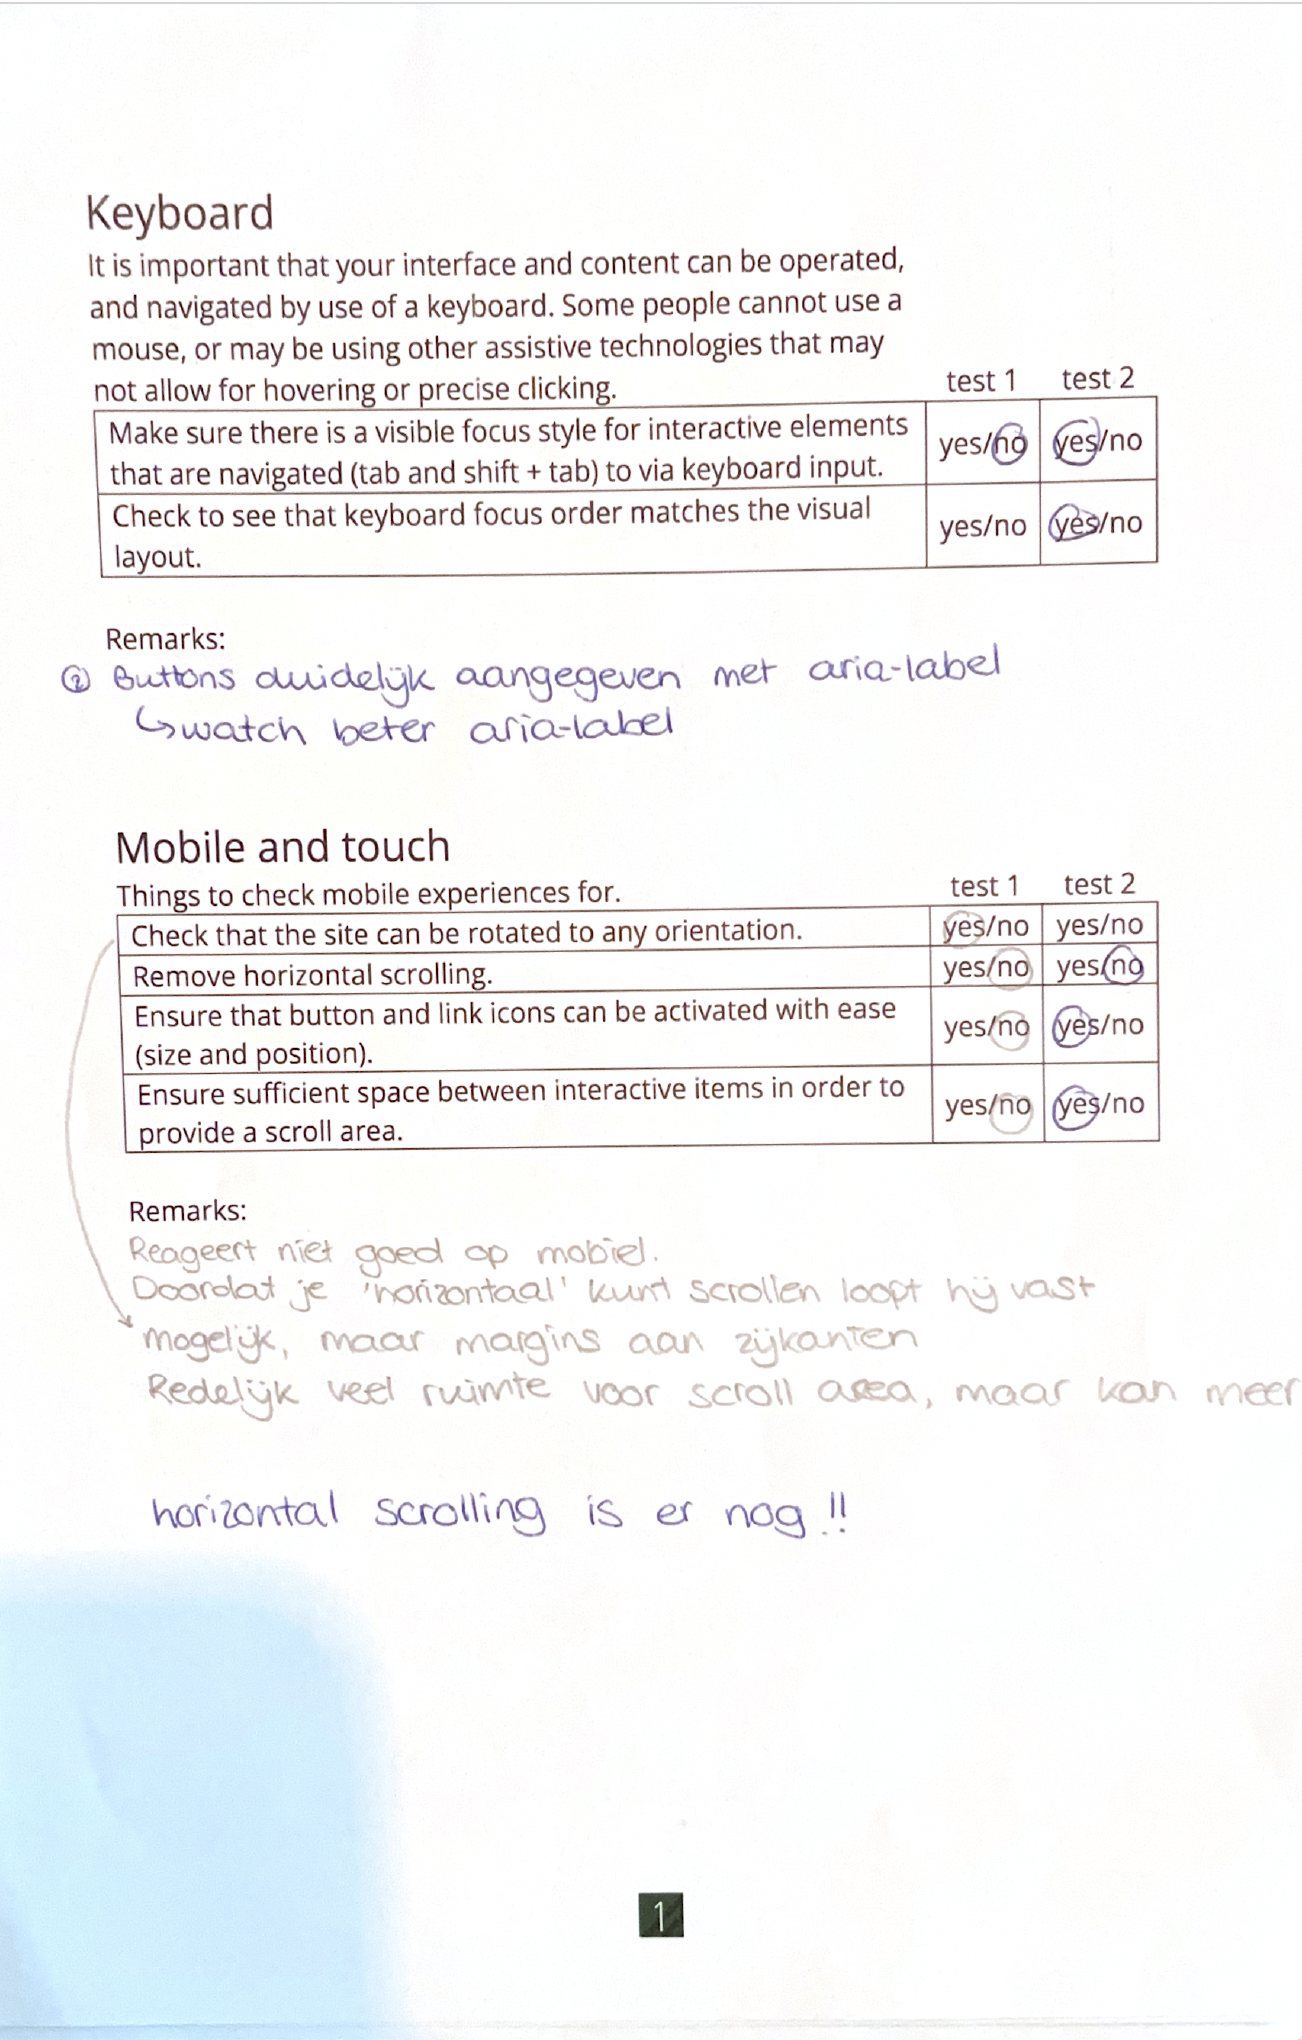 Keyboard
It is important that your interface and content can be operated,
and navigated by use of a keyboard. Some people cannot use a
mouse, or may be using other assistive technologies that may
not allow for hovering or precise clicking.
test 1 test 2
Make sure there is a visible focus style for interactive elements
that are navigated (tab and shift + tab) to via keyboard input.
yes/no yes/no
Check to see that keyboard focus order matches the visual
layout.
yes/no yes/no
Remarks:
② Buttons duidelijk aangegeven met aria-label
↳ watch beter aria-label
Mobile and touch
Things to check mobile experiences for.
test 1 test 2
Check that the site can be rotated to any orientation. yes/no yes/no
Remove horizontal scrolling. yes/no yes/no
Ensure that button and link icons can be activated with ease
(size and position).
yes/no yes/no
Ensure sufficient space between interactive items in order to
provide a scroll area.
yes/no yes/no
Remarks:
Reageert niet goed op mobiel.
Doordat je 'horizontaal' kunt scrollen loopt hij vast
mogelijk, maar margins aan zijkanten
Redelijk veel ruimte voor scroll area, maar kan meer
horizontal scrolling is er nog !!
1